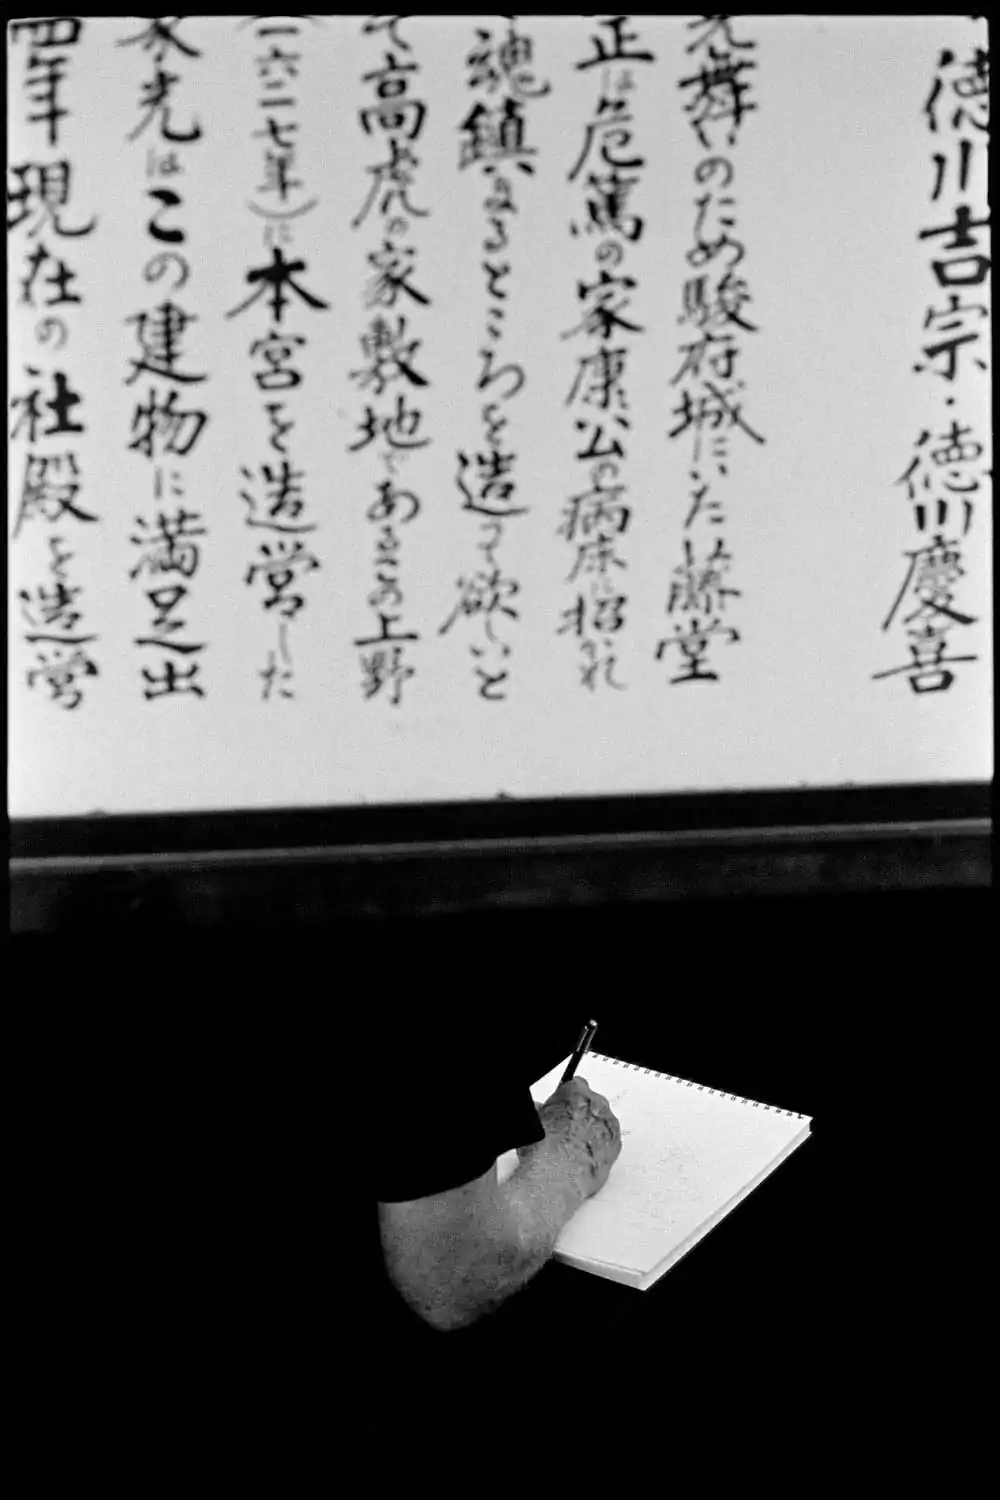 徳川吉宗・徳川慶喜
見舞いのため駿府城にいた藤堂
正は危篤の家康公の病床に招かれ
魂鎮まるところを造って欲しいと
て高虎の家敷地であるこの上野
一六二七年)に本宮を造営した
家光はこの建物に満足出
四年現在の社殿を造営